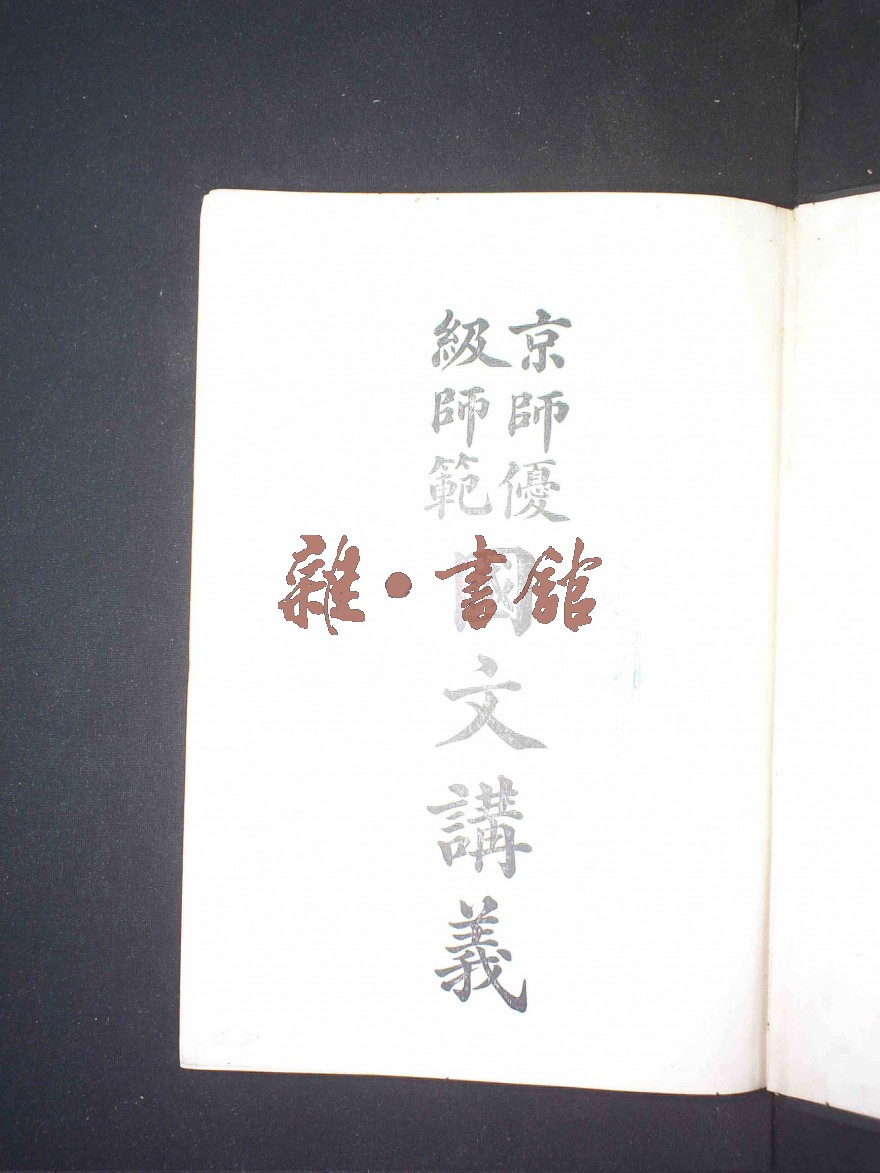 京師優
級師範
國文講義
雜·書館